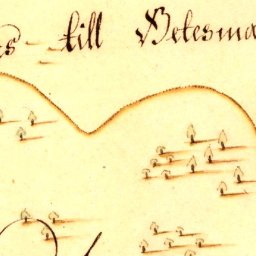 till Betesma